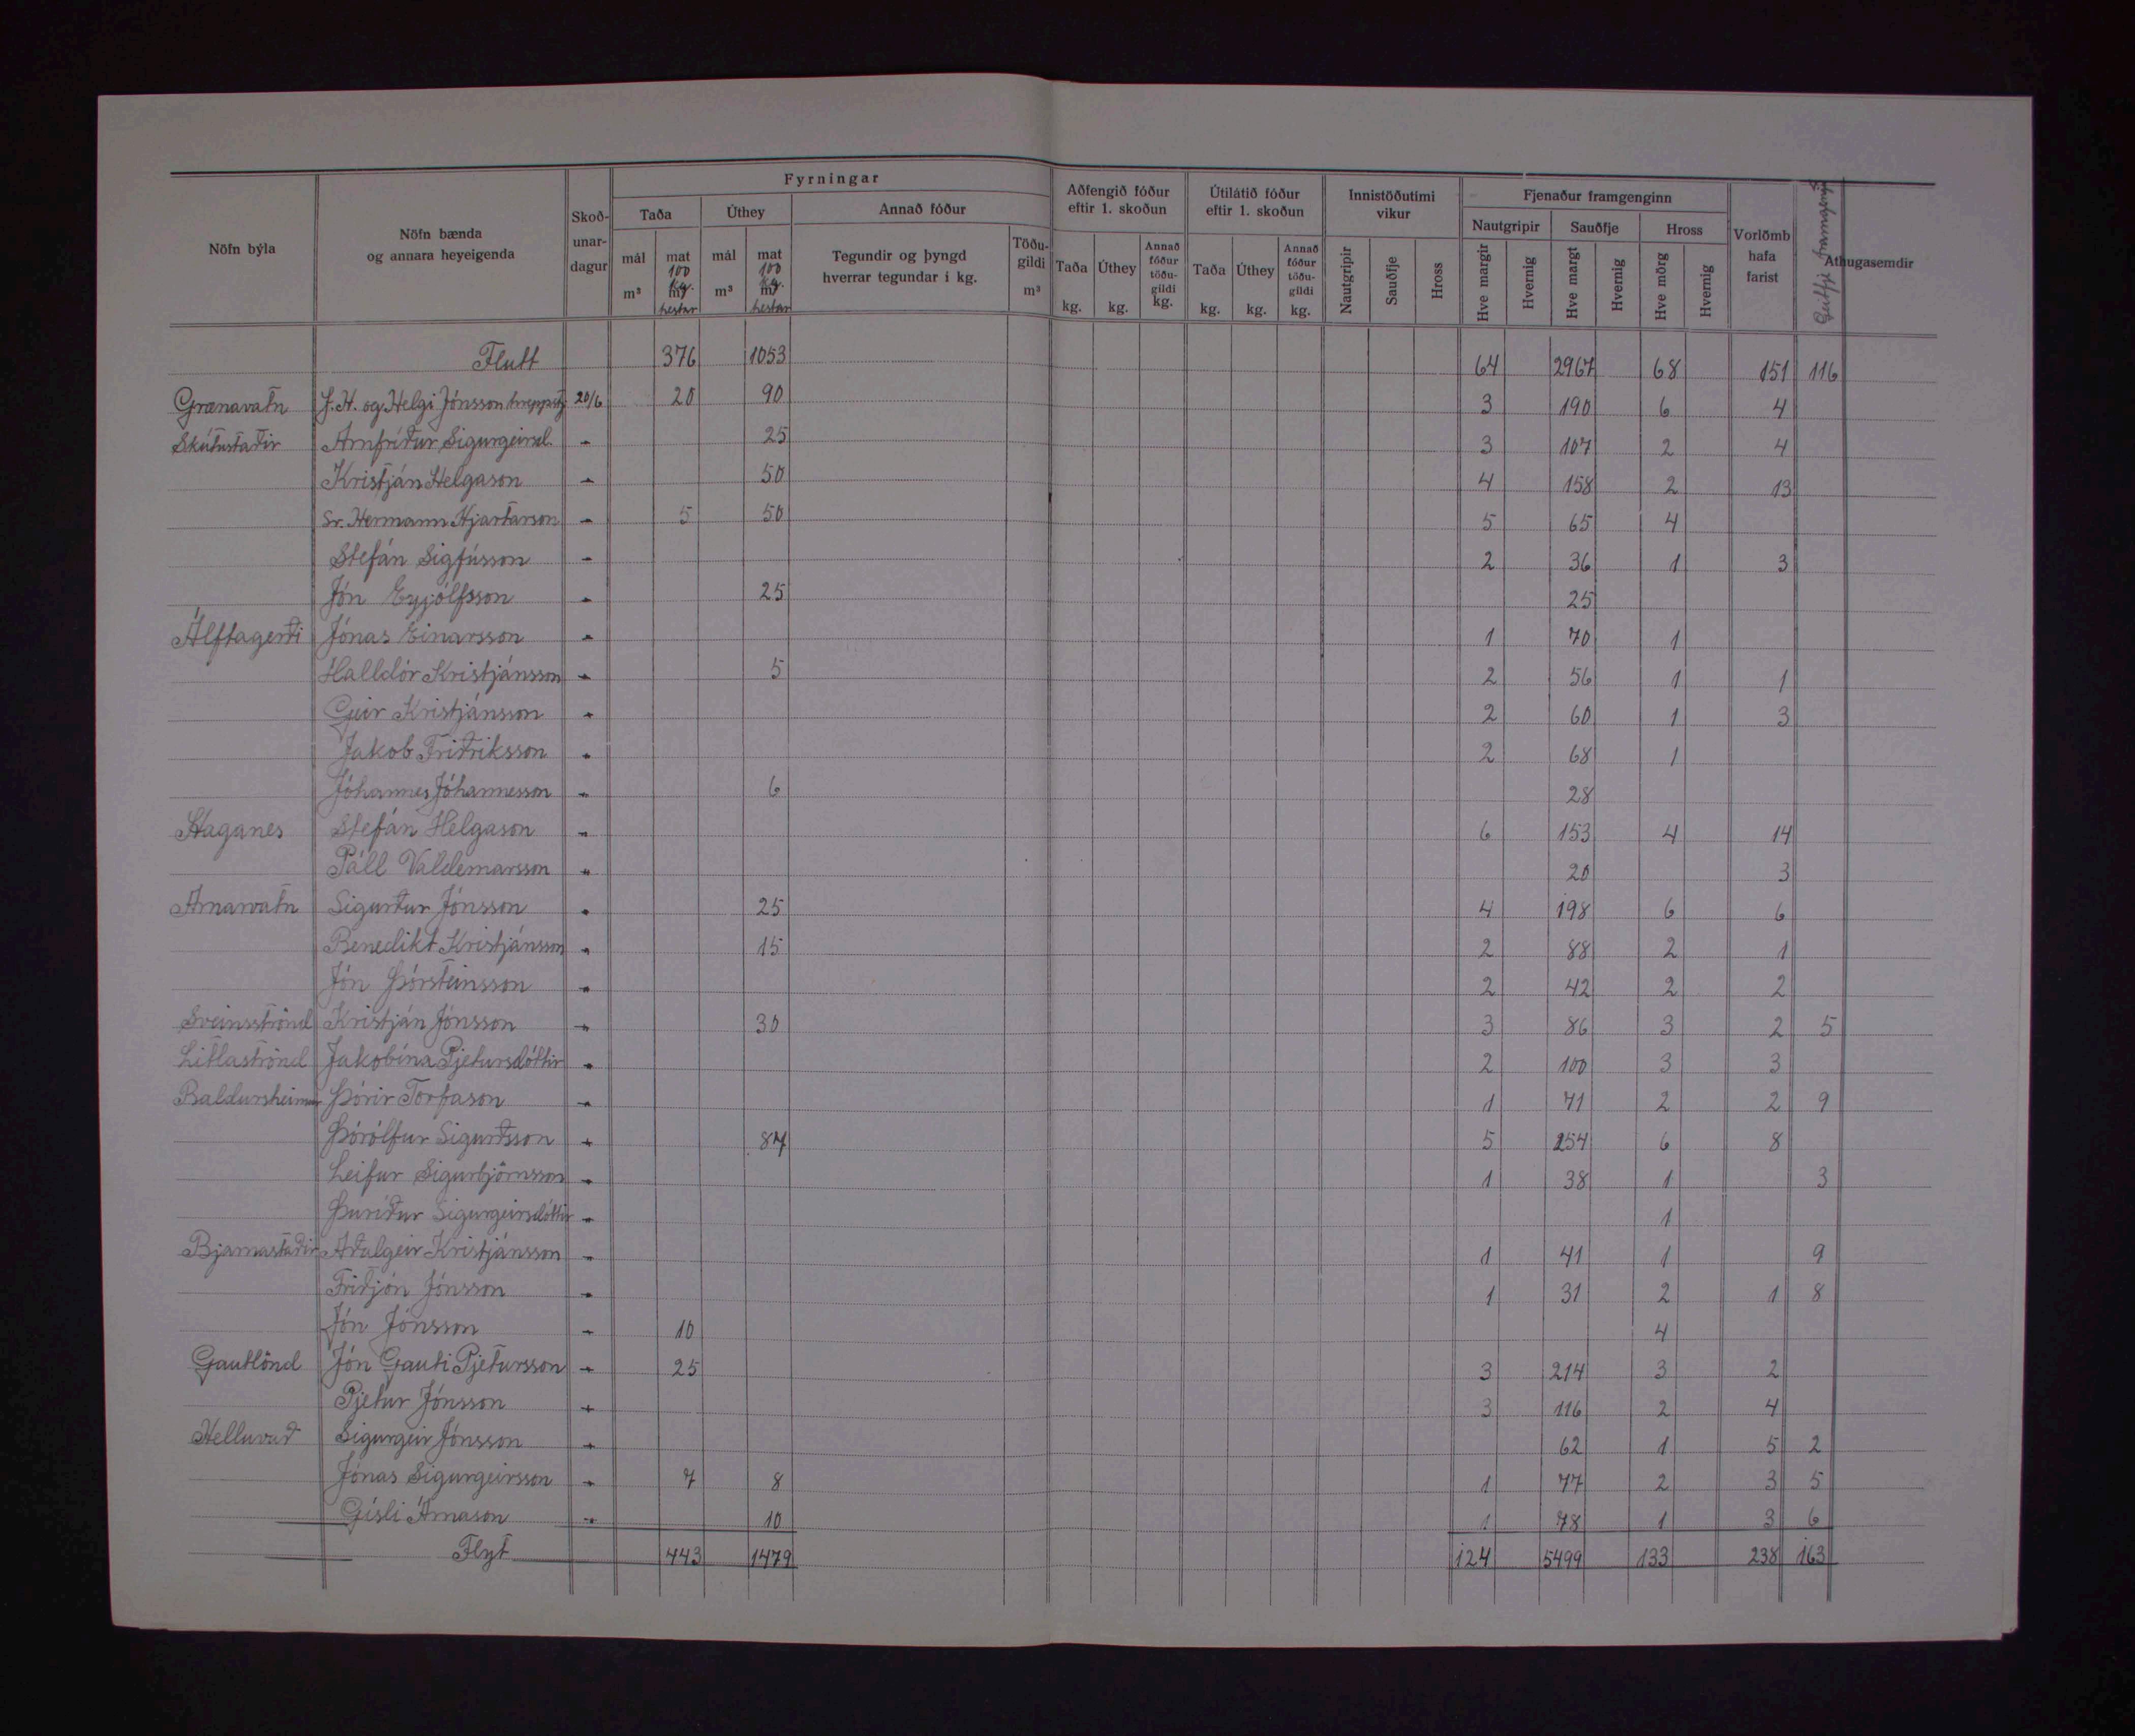 Fyrningar
Aðfengið fóður eftir 1. skoðun
Útilátið fóður eftir 1. skoðun
Innistöðutími vikur
Fjenaður framgenginn
Nöfn býla
Nöfn bænda og annara heyeigenda
Skoð-unar-dagur
Taða
Úthey
Annað fóður
Nautgripir
Sauðfje
Hross
Vorlömb hafa farist
Geitfje framgengið
Athugasemdir
mál m³
mat 100 kg. m³ hestar
mál m³
mat 100 kg. m³ hestar
Tegundir og þyngd hverrar tegundar í kg.
Töðu-gildi m³
Taða kg.
Úthey kg.
Annað fóður töðu-gildi kg.
Taða kg.
Úthey kg.
Annað fóður töðu-gildi kg.
Nautgripir
Sauðfje
Hross
Hve margir
Hvernig
Hve margt
Hvernig
Hve mörg
Hvernig
Flutt 376 1053 64 2967 68 151 116
Grænavatn J. H. og Helgi Jónsson hreppstj 20/6 20 90 3 190 6 4
Skútustaðir Arnfríður Sigurgeirsd. - 25 3 107 2 4
Kristján Helgason - 50 4 158 2 13
Sr. Hermann Hjartarson - 5 50 5 65 4
Stefán Sigfússon - 2 36 1 3
Jón Eyjólfsson - 25 25
Álftagerði Jónas Einarsson - 1 70 1
Halldór Kristjánsson - 5 2 56 1 1
Geir Kristjánsson - 2 60 1 3
Jakob Friðriksson - 2 68 1
Jóhannes Jóhannesson - 6 28
Haganes Stefán Helgason - 6 153 4 14
Páll Valdemarsson - 20 3
Arnarvatn Sigurður Jónsson - 25 4 198 6 6
Benedikt Kristjánsson - 15 2 88 2 1
Jón Þórsteinsson - 2 42 2 2
Sveinsströnd Kristján Jónsson - 30 3 86 3 2 5
Litlaströnd Jakobína Pjetursdóttir - 2 100 3 3
Baldursheimur Þórir Torfason - 1 71 2 2 9
Þórólfur Sigurðsson - 87 5 254 6 8
Leifur Sigurbjörnsson - 1 38 1 3
Þuríður Sigurgeirsdóttir - 1
Bjarnastaðir Aðalgeir Kristjánsson - 1 41 1 9
Friðjón Jónsson - 1 31 2 1 8
Jón Jónsson - 10 4
Gautlönd Jón Gauti Pjetursson - 25 3 214 3 2
Pjetur Jónsson - 3 116 2 4
Helluvað Sigurgeir Jónsson - 62 1 5 2
Jónas Sigurgeirsson - 7 8 1 77 2 3 5
Gísli Árnason - 10 1 78 1 3 6
Flyt 443 1479 124 5499 133 238 163